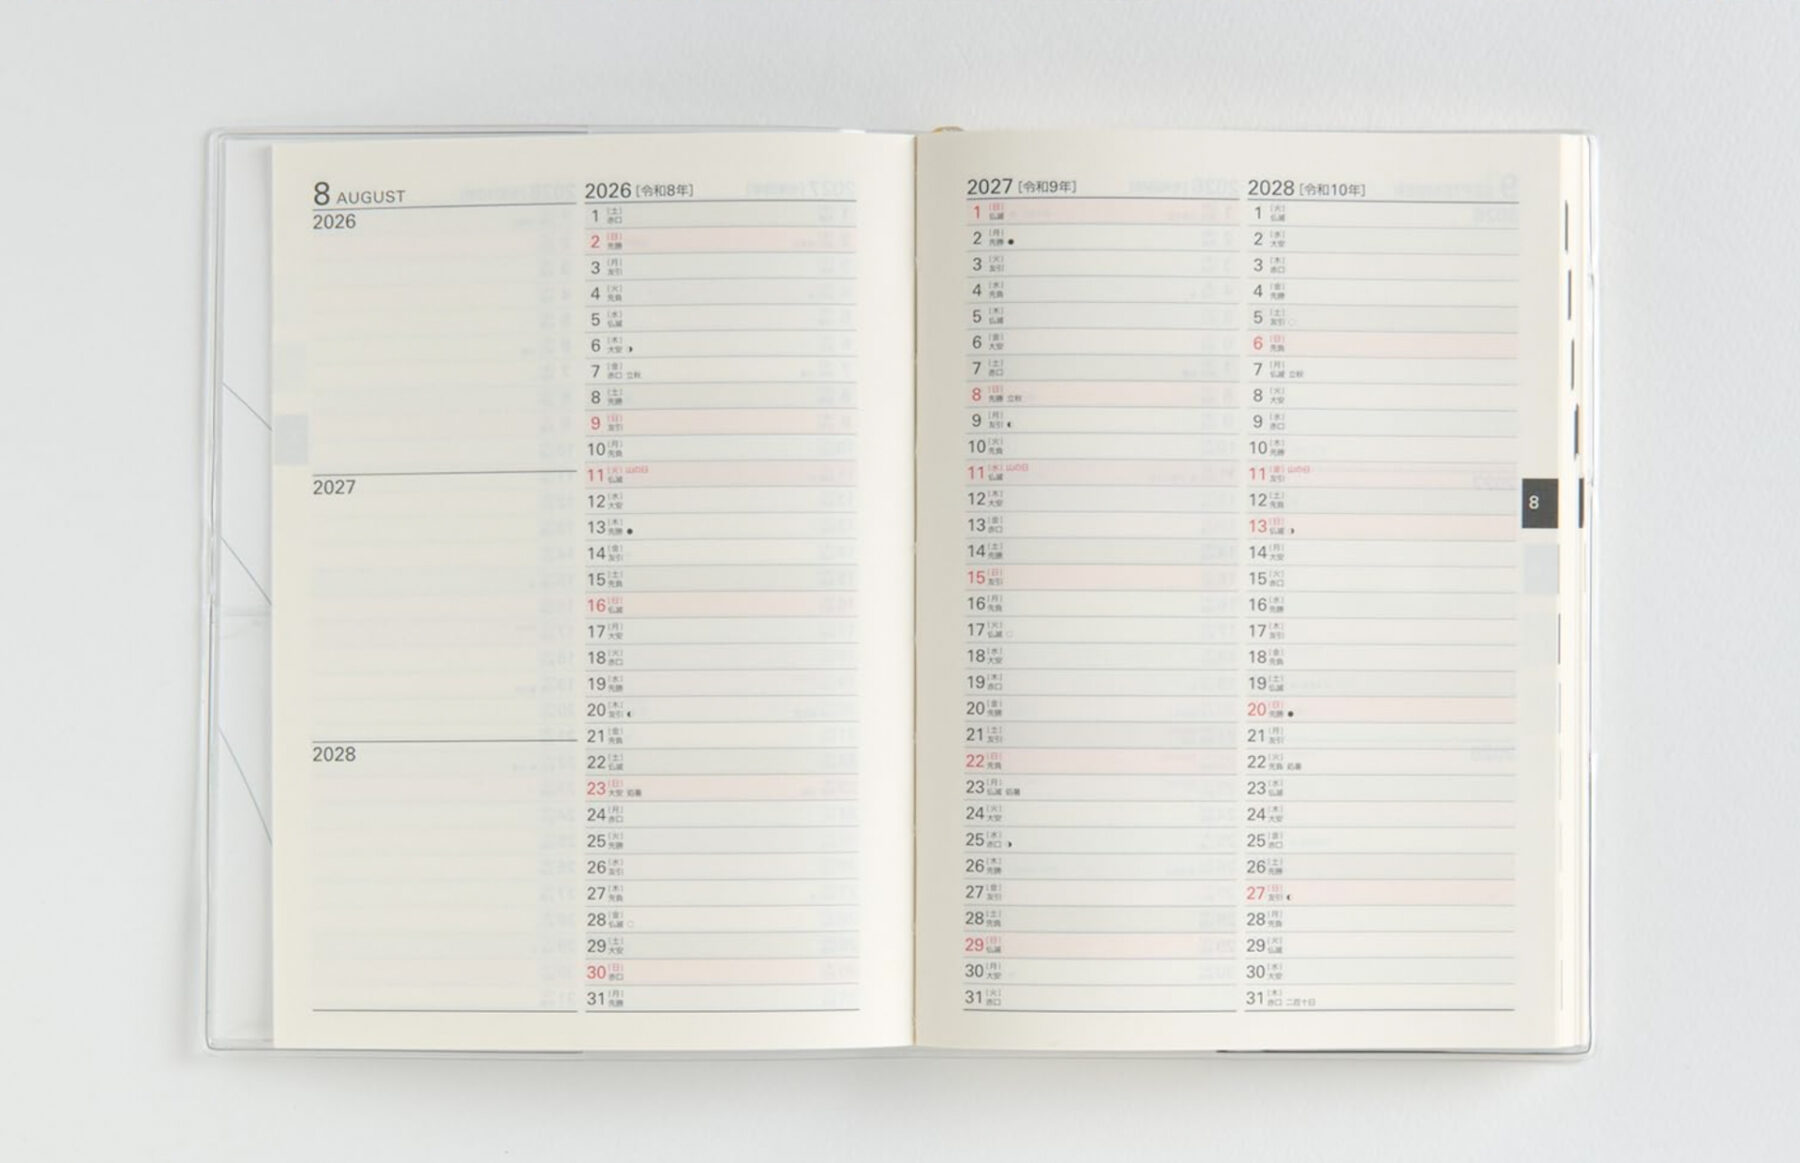 8 AUGUST
2026
2027
2028
2026 [令和8年]
1 [土] 赤口
2 [日] 先勝
3 [月] 友引
4 [火] 先負
5 [水] 仏滅
6 [木] 大安
7 [金] 赤口 立秋
8 [土] 先勝
9 [日] 友引
10 [月] 先負
11 [火] 山の日 仏滅
12 [水] 大安
13 [木] 先勝 ●
14 [金] 友引
15 [土] 先負
16 [日] 仏滅
17 [月] 大安
18 [火] 赤口
19 [水] 先勝
20 [木] 友引
21 [金] 先負
22 [土] 仏滅
23 [日] 大安 処暑
24 [月] 赤口
25 [火] 先勝
26 [水] 友引
27 [木] 先負
28 [金] 仏滅
29 [土] 大安
30 [日] 赤口
31 [月] 先勝
2027 [令和9年]
1 [日] 仏滅
2 [月] 先勝 ●
3 [火] 友引
4 [水] 先負
5 [木] 仏滅
6 [金] 大安
7 [土] 赤口
8 [日] 先勝 立秋
9 [月] 友引
10 [火] 先負
11 [水] 山の日 仏滅
12 [木] 大安
13 [金] 赤口
14 [土] 先勝
15 [日] 友引
16 [月] 先負
17 [火] 仏滅
18 [水] 大安
19 [木] 赤口
20 [金] 先勝
21 [土] 友引
22 [日] 先負
23 [月] 仏滅 処暑
24 [火] 大安
25 [水] 赤口
26 [木] 先勝
27 [金] 友引
28 [土] 先負
29 [日] 仏滅
30 [月] 大安
31 [火] 赤口
2028 [令和10年]
1 [火] 仏滅
2 [水] 大安
3 [木] 赤口
4 [金] 先勝
5 [土] 友引
6 [日] 先負
7 [月] 仏滅 立秋
8 [火] 大安
9 [水] 赤口
10 [木] 先勝
11 [金] 山の日 友引
12 [土] 先負
13 [日] 仏滅
14 [月] 大安
15 [火] 赤口
16 [水] 先勝
17 [木] 友引
18 [金] 先負
19 [土] 仏滅
20 [日] 先勝 ●
21 [月] 友引
22 [火] 先負 処暑
23 [水] 仏滅
24 [木] 大安
25 [金] 赤口
26 [土] 先勝
27 [日] 友引
28 [月] 先負
29 [火] 仏滅
30 [水] 大安
31 [木] 赤口 二百十日
8